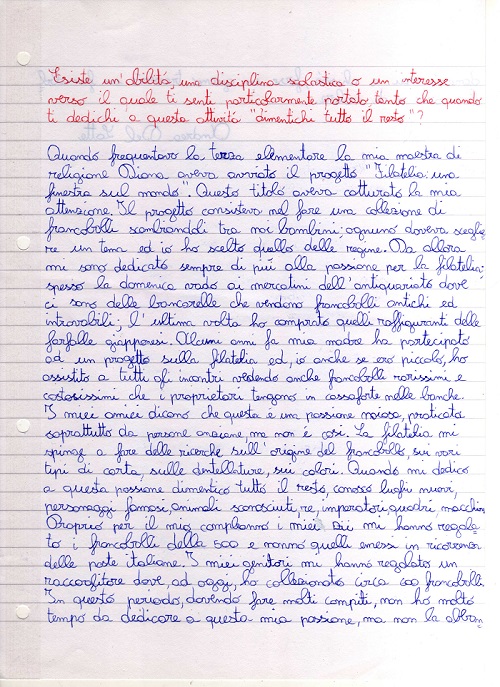 Esiste un'abilità, una disciplina scolastica o un interesse
verso il quale ti senti particolarmente portato, tanto che quando
ti dedichi a questa attività "dimentichi tutto il resto"?
Quando frequentavo la terza elementare la mia maestra di
religione Diana aveva avviato il progetto "Filatelia: una
finestra sul mondo". Questo titolo aveva catturato la mia
attenzione. Il progetto consisteva nel fare una collezione di
francobolli scambiandoli tra noi bambini: ognuno doveva sceglie
re un tema ed io ho scelto quello delle regine. Da allora
mi sono dedicato sempre di più alla passione per la filatelia:
spesso la domenica vado ai mercatini dell'antiquariato dove
ci sono delle bancarelle che vendono francobolli antichi ed
introvabili; l'ultima volta ho comprato quelli raffiguranti delle
farfalle giapponesi. Alcuni anni fa mia madre ha partecipato
ad un progetto sulla filatelia ed, io anche se ero piccolo, ho
assistito a tutti gli incontri vedendo anche francobolli rarissimi e
costosissimi che i proprietari tengono in cassaforte nelle banche.
I miei amici dicono che questa è una passione noiosa, praticata
soprattutto da persone anziane, ma non è così. La filatelia mi
spinge a fare delle ricerche sull'origine del francobollo, sui vari
tipi di carta, sulle dentellature, sui colori. Quando mi dedico
a questa passione dimentico tutto il resto, conosco luoghi nuovi,
personaggi famosi, animali sconosciuti, re, imperatori, quadri, macchine
Proprio per il mio compleanno i miei zii mi hanno regala
to i francobolli della 500 e nonno quelli emessi in ricorrenza
delle poste italiane. I miei genitori mi hanno regalato un
raccoglitore dove, ad oggi, ho collezionato circa 600 francobolli.
In questo periodo, dovendo fare molti compiti, non ho molto
tempo da dedicare a questa mia passione, ma non la abban-